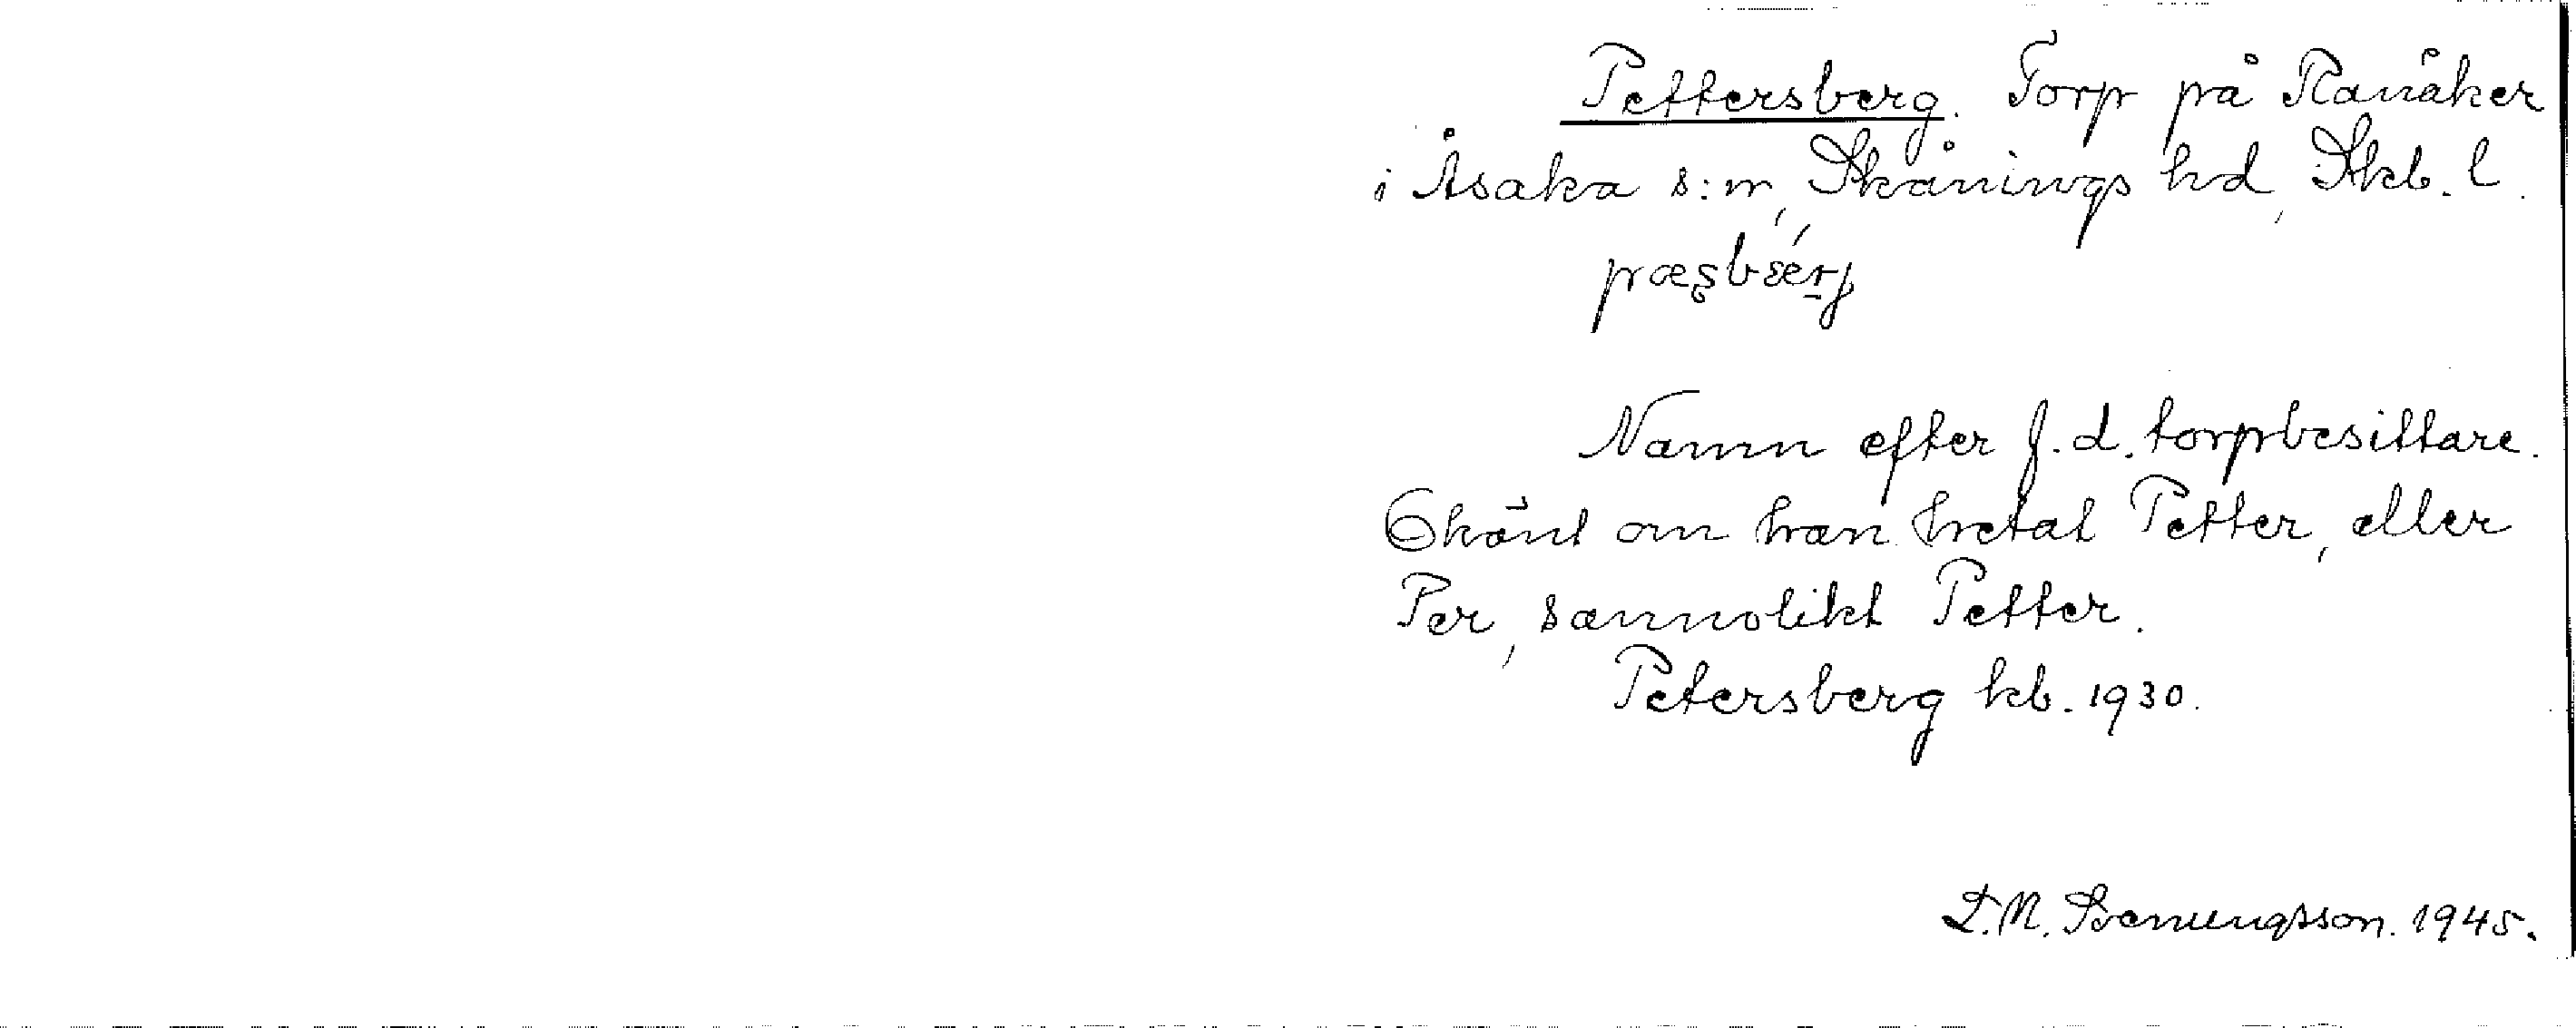 Pettersberg. Torp på Ranåker
i Åsaka s:n, Skånings hd, Skb. l.
Namn efter f.d. torpbesittare.
Okänt om han hetat Petter, eller
Per, sannolikt Petter.
Petersberg kb. 1930.
L.M. Svenungsson. 1945.